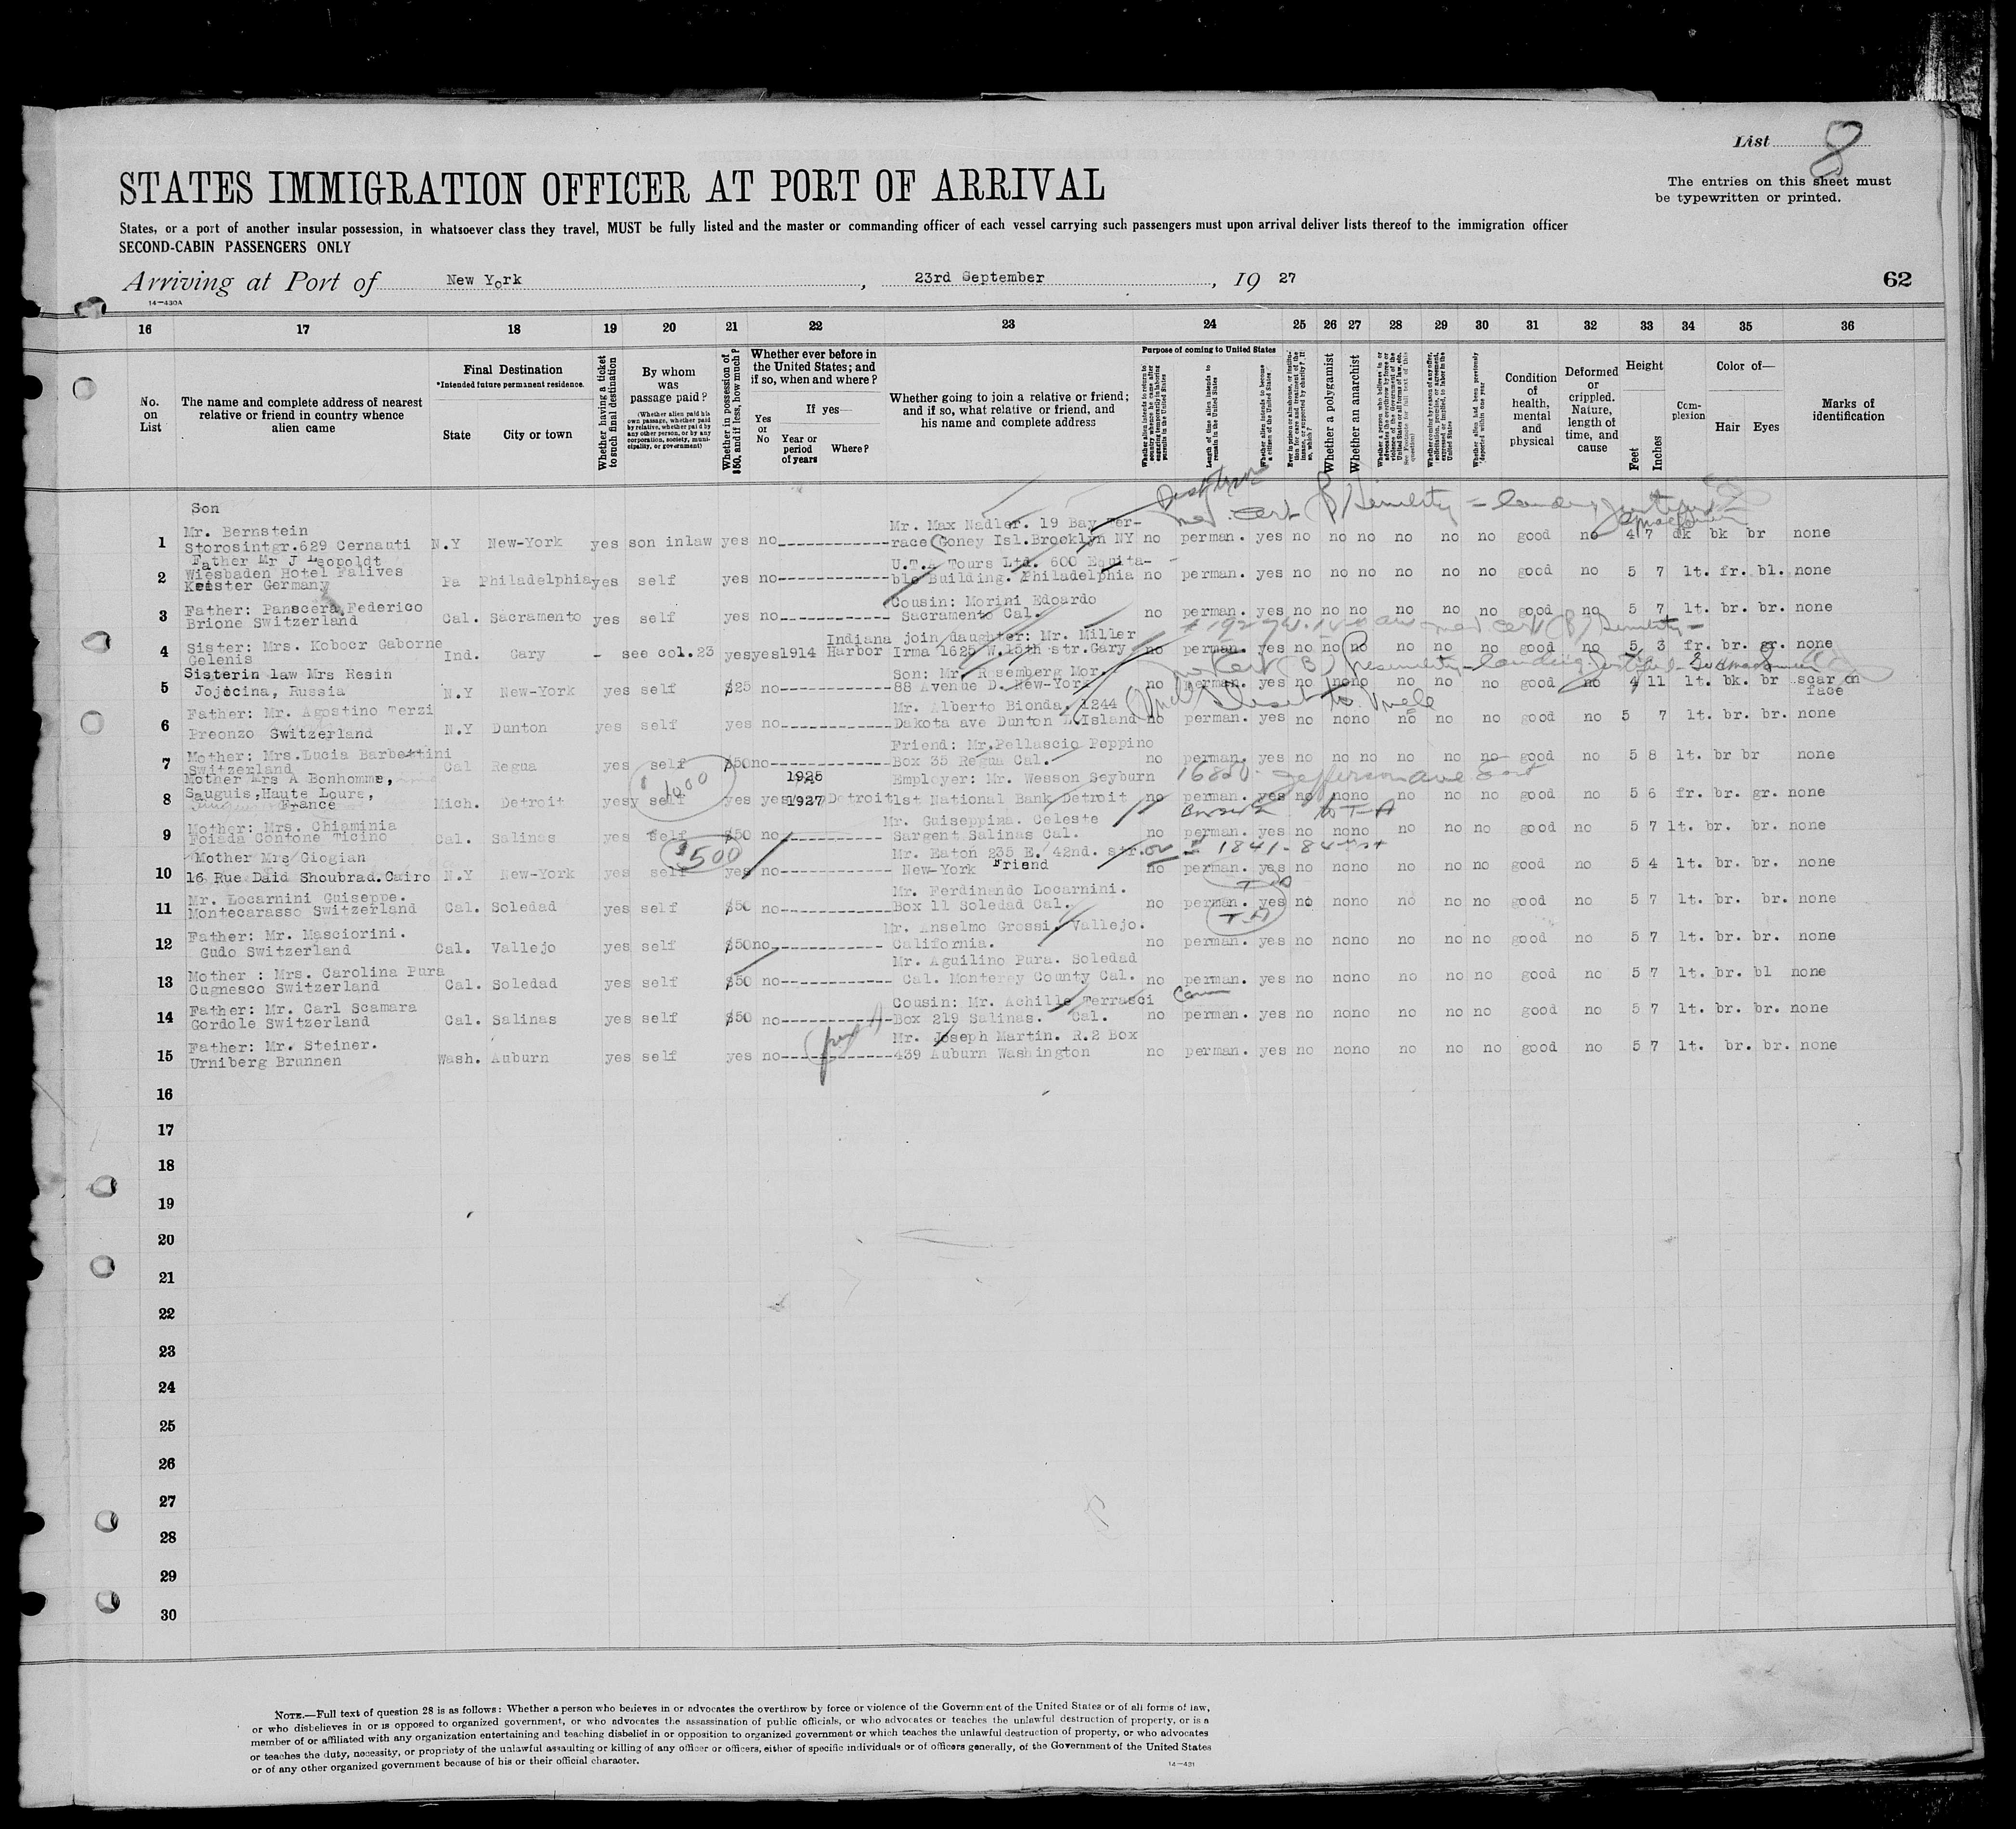 List 8
The entries on this sheet must
be typewritten or printed.
STATES IMMIGRATION OFFICER AT PORT OF ARRIVAL
States, or a port of another insular possession, in whatsoever class they travel, MUST be fully listed and the master or commanding officer of each vessel carrying such passengers must upon arrival deliver lists thereof to the immigration officer
SECOND-CABIN PASSENGERS ONLY
Arriving at Port of New York, 23rd September, 19 27
62
14—430A
16 17 18 19 20 21 22 23 24 25 26 27 28 29 30 31 32 33 34 35 36
No. on List
The name and complete address of nearest relative or friend in country whence alien came
Final Destination
*Intended future permanent residence.
State
City or town
Whether having a ticket to such final destination
By whom was passage paid?
(Whether alien paid his own passage, whether paid by relative, whether paid by any other person, or by any corporation, society, municipality, or government)
Whether in possession of $50, and if less, how much?
Whether ever before in the United States; and if so, when and where?
Yes or No
If yes—
Year or period of years
Where?
Whether going to join a relative or friend; and if so, what relative or friend, and his name and complete address
Purpose of coming to United States
Whether alien intends to return to country whence he came after engaging temporarily in laboring pursuits in the United States
Length of time alien intends to remain in the United States
Whether alien intends to become a citizen of the United States
Ever in prison or almshouse, or institution for care and treatment of the insane, or supported by charity? If so, which?
Whether a polygamist
Whether an anarchist
Whether coming by reason of any offer, solicitation, promise, or agreement, expressed or implied, to labor in the United States
Whether alien had been previously deported within one year
Condition of health, mental and physical
Deformed or crippled. Nature, length of time, and cause
Height
Feet
Inches
Complexion
Color of—
Hair
Eyes
Marks of identification
med. cert (B) Senility = landing
Son
1 Mr. Bernstein Storosintgr.629 Cernauti N.Y New-York yes son inlaw yes no Mr. Max Nadler. 19 Bay Terrace Coney Isl.Brooklyn NY no perman. yes no no no no no no good no 4 7 dk bk br none
2 Father Mr J Leopoldt Wiesbaden Hotel Falives Germany Pa Philadelphia yes self yes no U.T.A Tours Ltd. 600 Equitable Building. Philadelphia no perman. yes no no no no no no good no 5 7 lt. fr. bl. none
3 Father: Panscera Federico Brione Switzerland Cal. Sacramento yes self yes no Cousin: Morini Edoardo Sacramento Cal. no perman. yes no no no no no no good no 5 7 lt. br. br. none
med cert (B) Senility =
4 Sister: Mrs. Kobocr Gaborne Celenis Ind. Gary - see col.23 yes yes 1914 Indiana Harbor join daughter: Mr. Miller Irma 1625 W.15th str.Gary no perman. yes no no no no no no good no 5 3 fr. br. gr. none
5 Sisterin law Mrs Resin Jojecina, Russia N.Y New-York yes self $25 no Son: Mr. Rosemberg Mor. 88 Avenue D. New-York no perman. yes no nono no no no good no 4 11 lt. bk. br scar on face
6 Father: Mr. Agostino Terzi Preonzo Switzerland N.Y Dunton yes self yes no Mr. Alberto Bionda. 1244 Dakota ave Dunton L.Island no perman. yes no nono no no no good no 5 7 lt. br. br. none
7 Mother: Mrs.Lucia Barbettini Switzerland Cal Regua yes self $50 no Friend: Mr.Pellascio Peppino Box 35 Regua Cal. no perman. yes no no no no no no good no 5 8 lt. br br none
$1000
16850 Jefferson Ave East
8 Mother Mrs A Bonhomme, Sauguis,Haute Loure, France Mich. Detroit yes self yes yes 1925 1927 Detroit Employer: Mr. Wesson Seyburn 1st National Bank Detroit no perman. yes no nono no no no good no 5 6 fr. br. gr. none
9 Mother: Mrs. Chiaminia Foiada Contone Ticino Cal. Salinas yes self $50 no Mr. Guiseppina. Celeste Sargent Salinas Cal. no perman. yes no nono no no no good no 5 7 lt. br. br. none
$500
10 Mother Mrs Giogian 16 Rue Daid Shoubrad.Cairo N.Y New-York yes self yes no Mr. Eaton 235 E. 42nd. str. New-York Friend no perman. yes no nono no no no good no 5 4 lt. br. br. none
11 Mr. Locarnini Guiseppe. Montecarasso Switzerland Cal. Soledad yes self $50 no Mr. Ferdinando Locarnini. Box 11 Soledad Cal. no perman. yes no nono no no no good no 5 7 lt. br. br. none
12 Father: Mr. Masciorini. Gudo Switzerland Cal. Vallejo yes self $50 no Mr. Anselmo Grossi, Vallejo. California. no perman. yes no nono no no no good no 5 7 lt. br. br. none
13 Mother : Mrs. Carolina Pura Cugnesco Switzerland Cal. Soledad yes self $50 no Mr. Aguilino Pura. Soledad Cal. Monterey County Cal. no perman. yes no nono no no no good no 5 7 lt. br. bl none
14 Father: Mr. Carl Scamara Gordole Switzerland Cal. Salinas yes self $50 no Cousin: Mr. Achille Terrasci Box 219 Salinas. Cal. no perman. yes no nono no no no good no 5 7 lt. br. br. none
15 Father: Mr. Steiner. Urniberg Brunnen Wash. Auburn yes self yes no Mr. Joseph Martin. R.2 Box 439 Auburn Washington no perman. yes no nono no no no good no 5 7 lt. br. br. none
16
17
18
19
20
21
22
23
24
25
26
27
28
29
30
NOTE.—Full text of question 28 is as follows: Whether a person who believes in or advocates the overthrow by force or violence of the Government of the United States or of all forms of law,
or who disbelieves in or is opposed to organized government, or who advocates the assassination of public officials, or who advocates or teaches the unlawful destruction of property, or is a
member of or affiliated with any organization entertaining and teaching disbelief in or opposition to organized government or which teaches the unlawful destruction of property, or who advocates
or teaches the duty, necessity, or propriety of the unlawful assaulting or killing of any officer or officers, either of specific individuals or of officers generally, of the Government of the United States
or of any other organized government because of his or their official character.
14—431